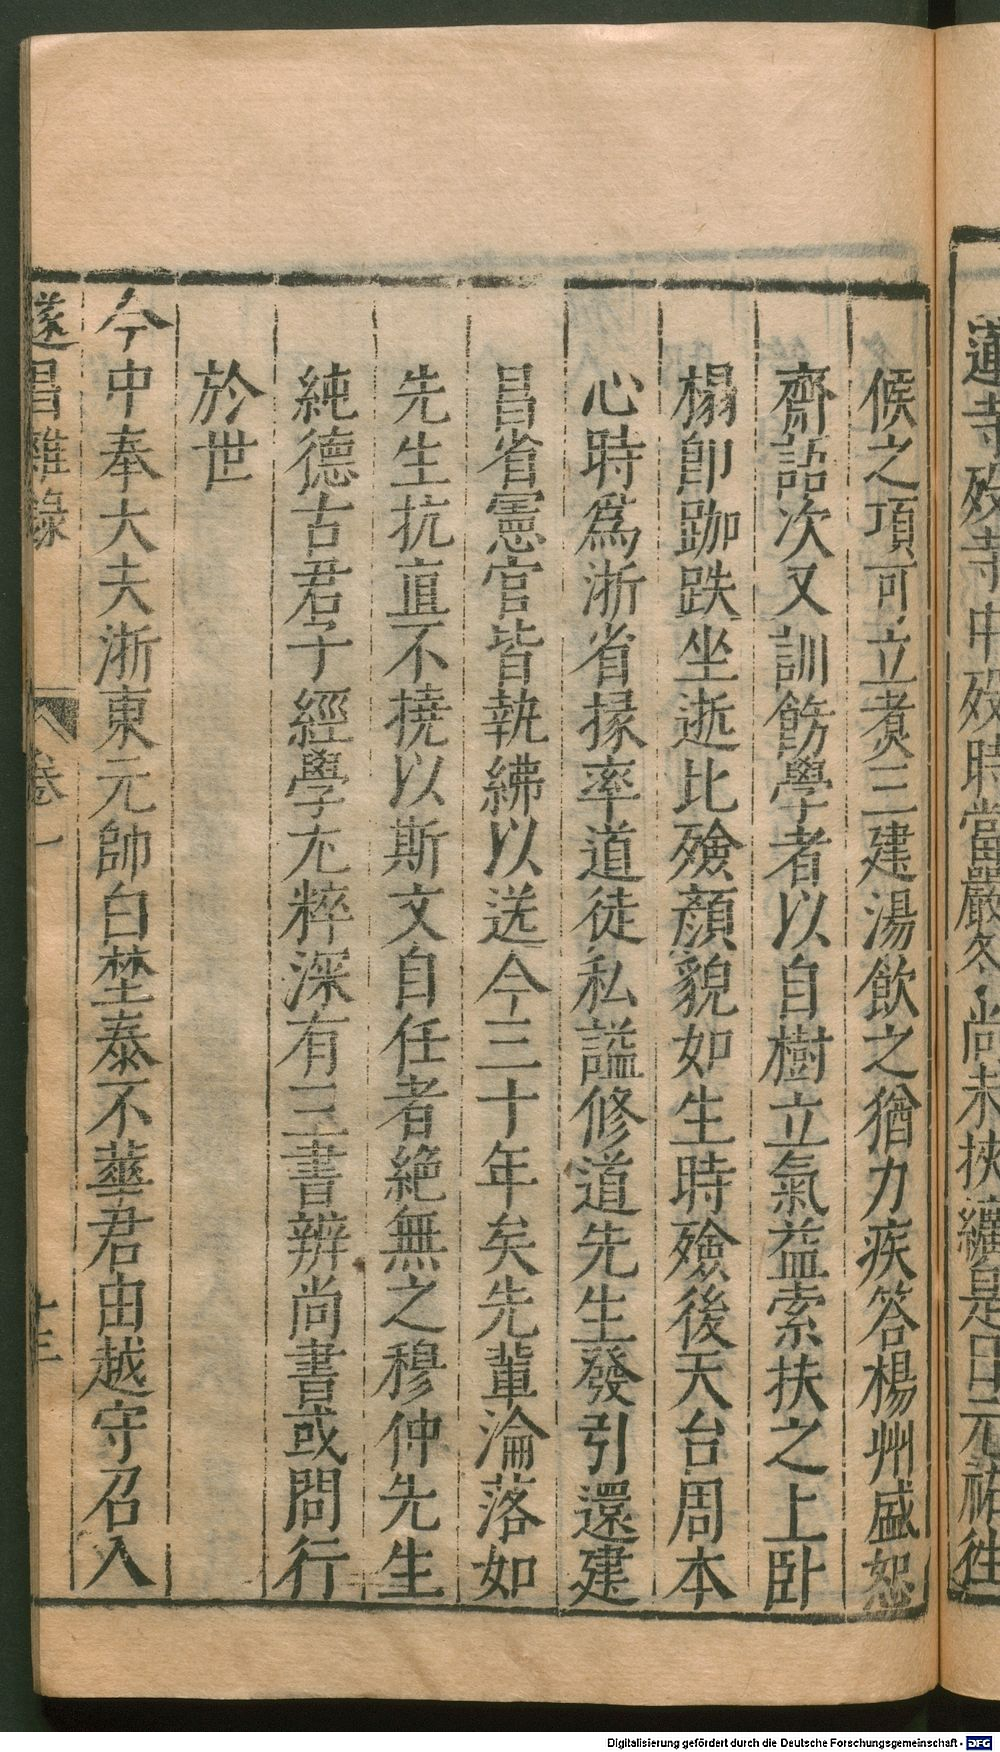 蓮寺歿寺中歿時當嚴冬尚未挾纊是日元祐徃
候之項可立煑三建湯飲之猶力疾答楊州盛恕
齋詰次又訓飭學者以自樹立氣益索扶之上卧
榻卽跏趺坐逝比殮顏貌如生時殮後天台周本
心時爲浙省掾率道徒私謚修道先生發引還建
昌省憲官皆執紼以送今三十年矣先輩淪落如
先生抗直不撓以斯文自任者絶無之穆仲先生
純德古君子經學尢粹深有三書辨尚書或問行
於世
今中奉大夫浙東元帥白埜泰不華君由越守召入
遂昌雜錄
卷一
十三
Digitalisierung gefördert durch die Deutsche Forschungsgemeinschaft - DFG